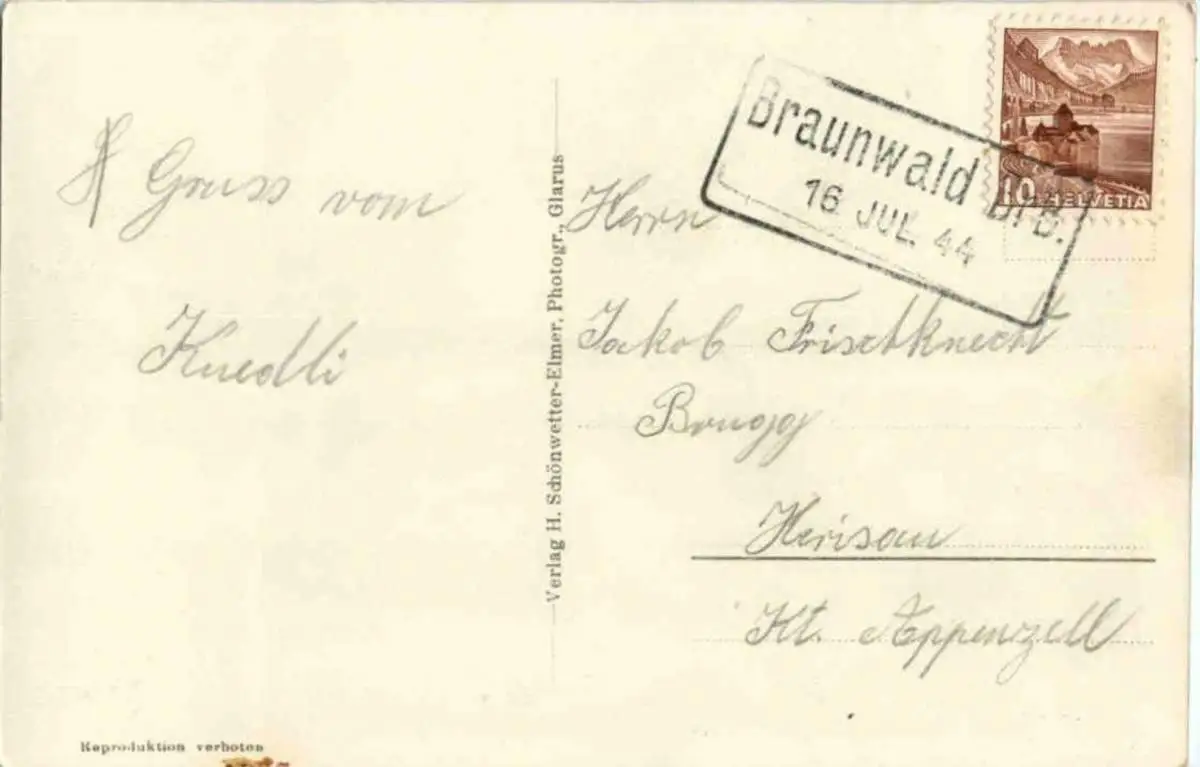 Gruss vom
Knedli
Verlag H. Schönwetter-Elmer, Photogr., Glarus
Braunwald Br B.
16 JUL. 44
10 HELVETIA
Herrn
Jakob Frisctknecht
Brugg
Herisau
Kt. Appenzell
Reproduktion verboten